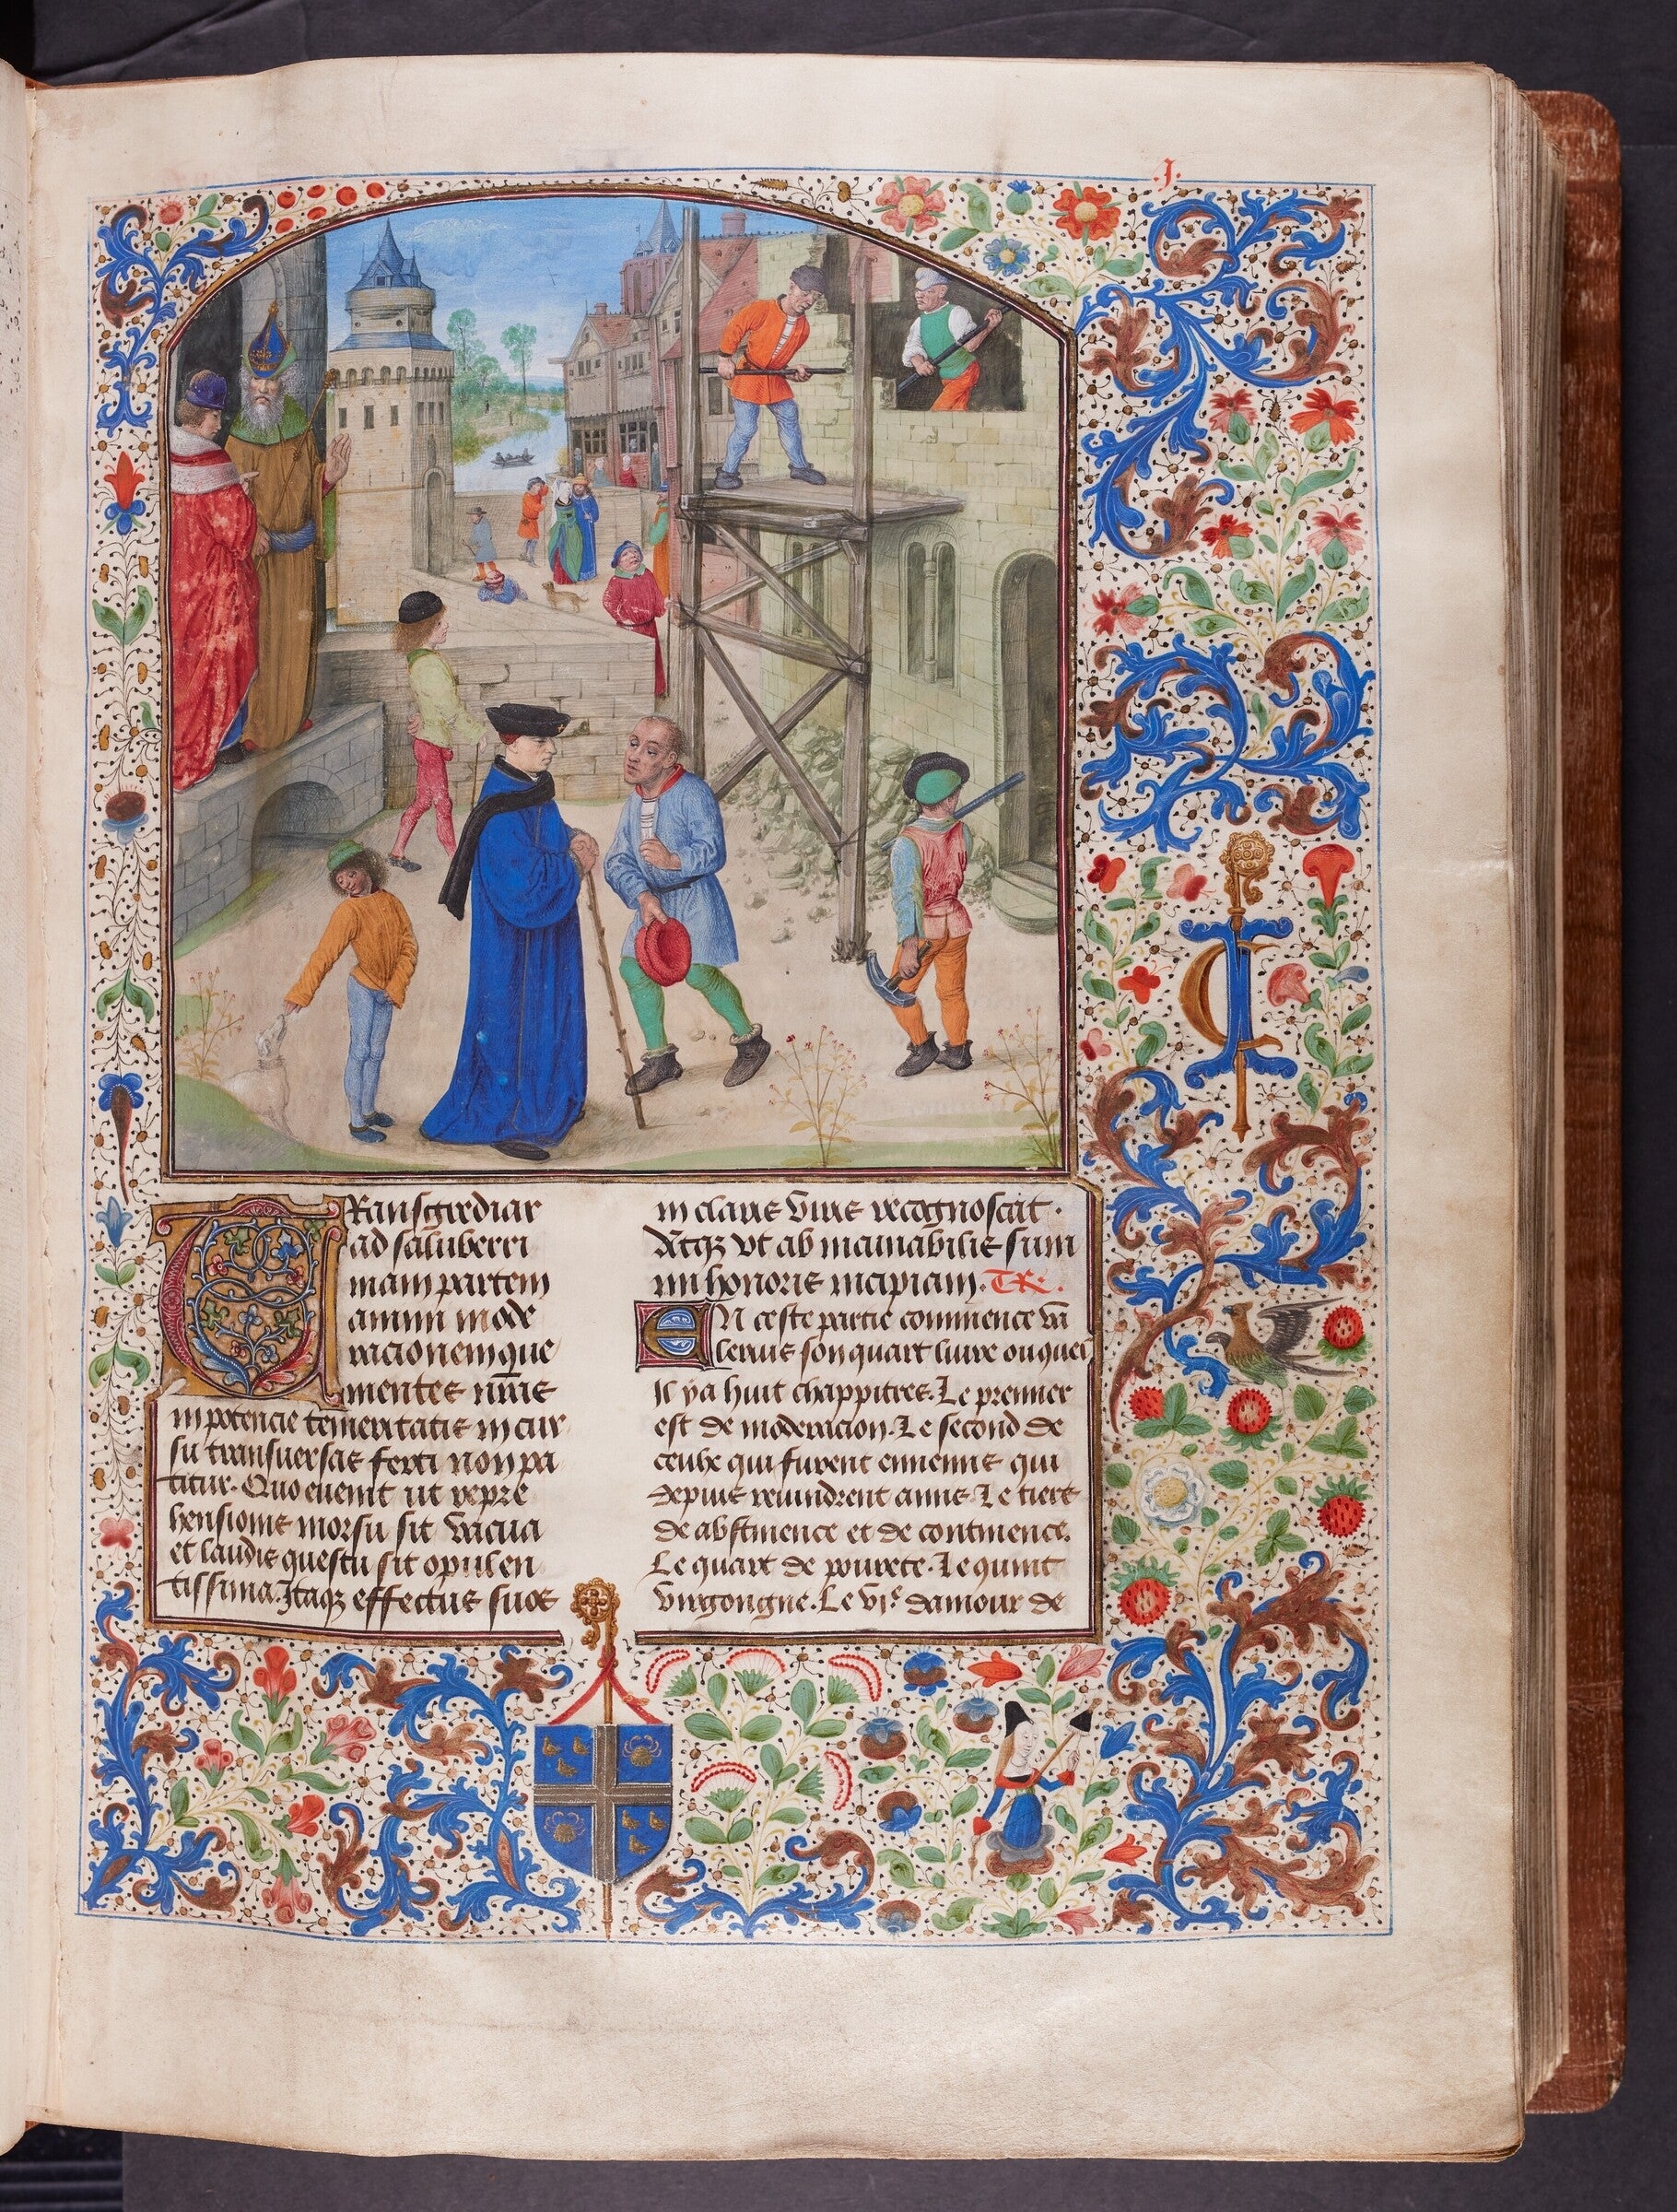 .J.
TRansgrediar
ad saluberri
mam partem
animi mode
racionemque
mentes nr̄as
inpotencie temeritatis incur
su transuersas ferri non pa
titur. Quo euenit ut repre
hensionis morsu sit vacua
et laudis questu sit opulen
tissima. Itaqꝫ effectus suos
in claris viris recognoscat.
Atqꝫ vt ab incunabilis sum
mi honoris incipiam. TR.
EN ceste partie commence va
lerius son quart liure ouquel
Il ya huit chappitres. Le premier
est de moderacion. Le second de
ceulx qui furent ennemis qui
depuis reuindrent amis. Le tiers
de abstinence et de continence.
Le quart de pourete. Le quint
virgongne. Le vi.e damour de